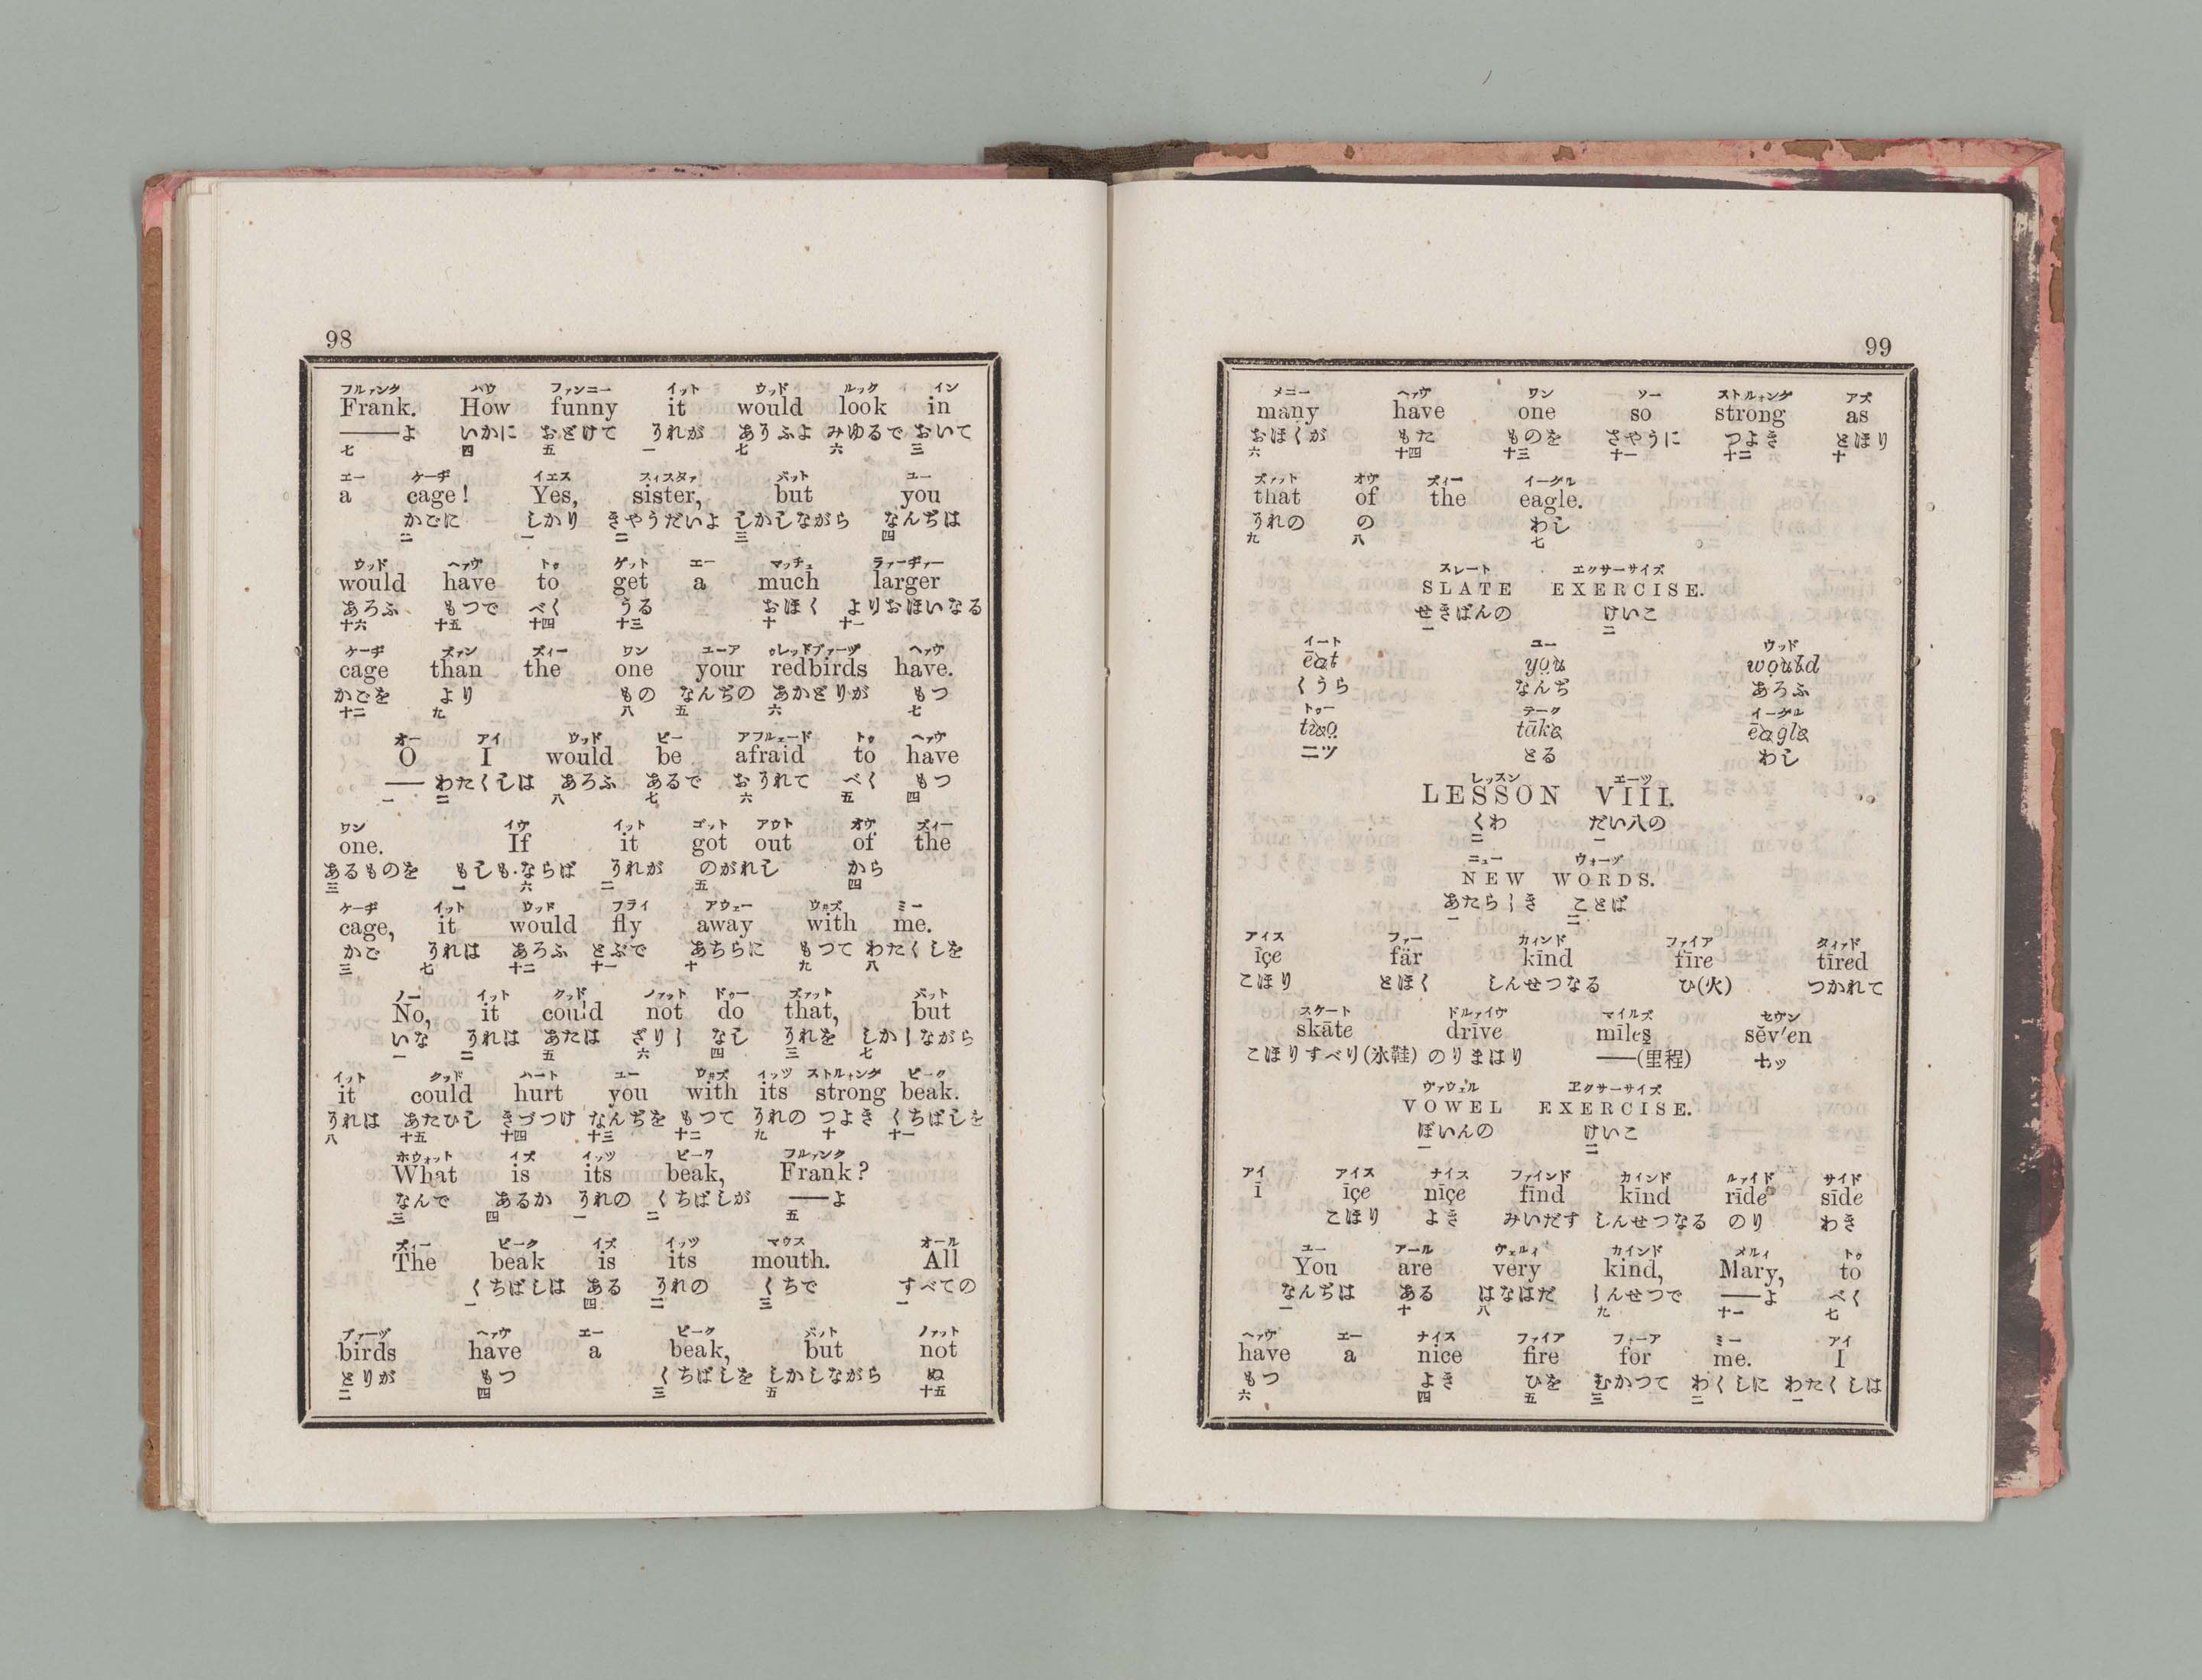 98
フルァンク ハウ ファンニー イット ウッド ルック イン
Frank. How funny it would look in
——よ いかに おどけて うれが あろふよ みゆるで おいて
七 四 五 一 七 六 三
エー ケーヂ イエス スィスタァ バット ユー
a cage! Yes, sister, but you
かごに しかり きやうだいよ しかしながら なんぢは
二 一 二 三 四
ウッド ヘァヴ トゥ ゲット エー マッチュ ラァーヂァー
would have to get a much larger
あろふ もつで べく うる おほく よりおほいなる
十六 十五 十四 十三 十 十一
ケーヂ ズァン ズィー ワン ユーア ゥレッドブァーヅ ヘァヴ
cage than the one your redbirds have.
かごを より もの なんぢの あかどりが もつ
十二 九 八 五 六 七
オー アイ ウッド ビー アフルェード トゥ ヘァヴ
O I would be afraid to have
—— わたくしは あろふ あるで おうれて べく もつ
一 二 八 七 六 五 四
ワン イヴ イット ゴット アウト オヴ ズィー
one. If it got out of the
あるものを もしも・ならば うれが のがれし から
三 一 六 二 五 四
ケーヂ イット ウッド フライ アウェー ウ井ズ ミー
cage, it would fly away with me.
かご うれは あろふ とぶで あちらに もつて わたくしを
三 七 十二 十一 十 九 八
ノー イット クッド ノァット ドゥー ズァット バット
No, it could not do that, but
いな うれは あたは ざりし なし うれを しかしながら
一 二 五 六 四 三 七
イット クッド ハート ユー ウ井ズ イッツ ストルォング ビーク
it could hurt you with its strong beak.
うれは あたひし きづつけ なんぢを もつて うれの つよき くちばしを
八 十五 十四 十三 十二 九 十 十一
ホウォット イズ イッツ ビーク フルァンク
What is its beak, Frank?
なんで あるか うれの くちばしが ——よ
三 四 一 二 五
ズィー ビーク イズ イッツ マウス オール
The beak is its mouth. All
くちばしは ある うれの くちで すべての
一 四 二 三 一
ブァーヅ ヘァヴ エー ビーク バット ノァット
birds have a beak, but not
とりが もつ くちばしを しかしながら ぬ
二 四 三 五 十五
99
メニー ヘァヴ ワン ソー ストルォング アズ
many have one so strong as
おほくが もた ものを さやうに つよき とほり
六 十四 十三 十一 十二 十
ズァット オヴ ズィー イーグル
that of the eagle.
うれの の わし
九 八 七
スレート エクサーサイズ
SLATE EXERCISE.
せきばんの けいこ
一 二
イート ユー ウッド
ēat you would
くうら なんぢ あろふ
トゥー テーク イーグル
two tāke ēagle
二ツ とる わし
レッスン エーツ
LESSON VIII.
くわ だい八の
二 一
ニュー ウォーヅ
NEW WORDS.
あたらしき ことば
一 二
アイス ファー カィンド ファイア タィァド
īçe fär kīnd fīre tīred
こほり とほく しんせつなる ひ(火) つかれて
スケート ドルァイヴ マイルズ セヴン
skāte drīve mīles sĕv′en
こほりすべり(氷鞋) のりまはり ——(里程) 七ッ
ヴァウェル エクサーサイズ
VOWEL EXERCISE.
ぼいんの けいこ
一 二
アイ アイス ナイス ファインド カインド ルァイド サイド
ī īçe nīçe fīnd kīnd rīde sīde
こほり よき みいだす しんせつなる のり わき
ユー アール ヴェルィ カインド メルィ トゥ
You are very kind, Mary, to
なんぢは ある はなはだ しんせつで ——よ べく
一 十 八 九 十一 七
ヘァヴ エー ナイス ファイア フォーア ミー アイ
have a nice fire for me. I
もつ よき ひを むかつて わくしに わたくしは
六 四 五 三 二 一